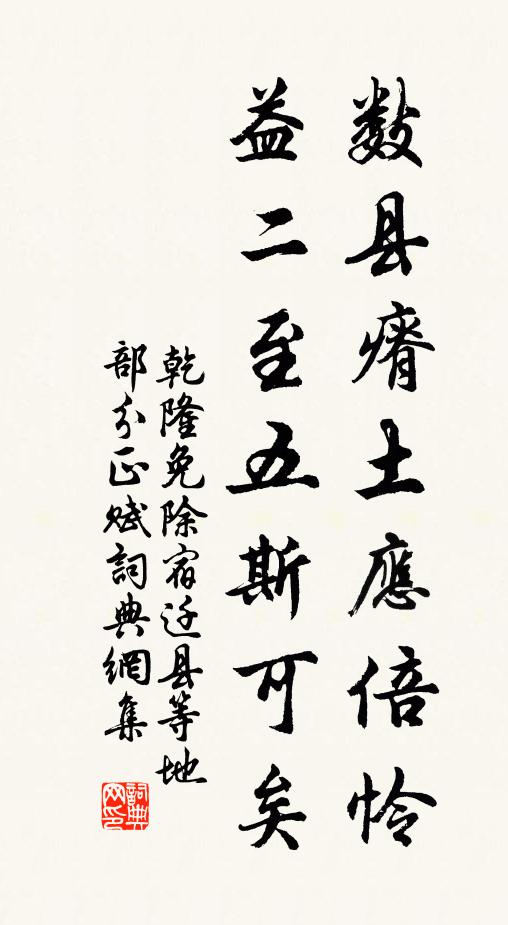 数县瘠土應倍怜
益二至五斯可矣
乾隆免除宿迁县等地
部分正赋詞典網集
詞典网印